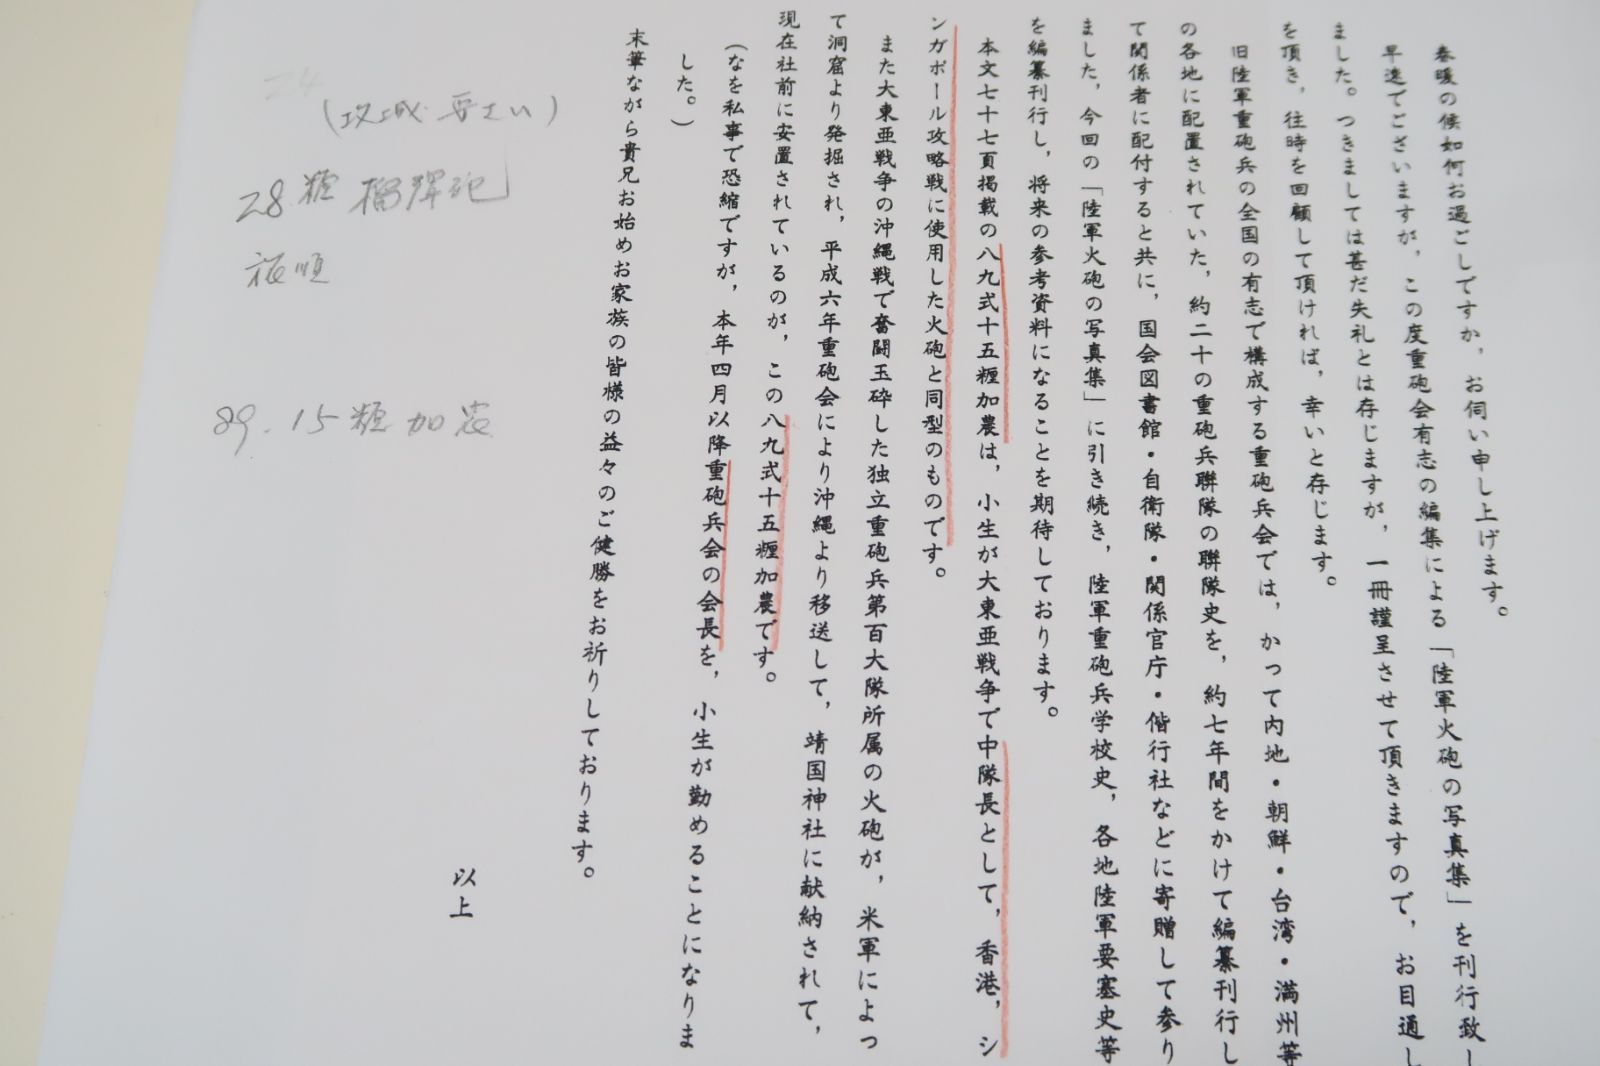 春暖の候如何お過ごしですか，お伺い申し上げます。
早速でございますが，この度重砲会有志の編集による「陸軍火砲の写真集」を刊行致し
ました。つきましては甚だ失礼とは存じますが，一冊謹呈させて頂きますので，お目通し
を頂き，往時を回顧して頂ければ，幸いと存じます。
旧陸軍重砲兵の全国の有志で構成する重砲兵会では，かって内地・朝鮮・台湾・満州等
の各地に配置されていた，約二十の重砲兵聯隊の聯隊史を，約七年間をかけて編纂刊行し
て関係者に配付すると共に，国会図書館・自衛隊・関係官庁・偕行社などに寄贈して参り
ました，今回の「陸軍火砲の写真集」に引き続き，陸軍重砲兵学校史，各地陸軍要塞史等
を編纂刊行し，将来の参考資料になることを期待しております。
本文七十七頁掲載の八九式十五糎加農は，小生が大東亜戦争で中隊長として，香港，シ
ンガポール攻略戦に使用した火砲と同型のものです。
また大東亜戦争の沖縄戦で奮闘玉砕した独立重砲兵第百大隊所属の火砲が，米軍によっ
て洞窟より発掘され，平成六年重砲会により沖縄より移送して，靖国神社に献納されて，
現在社前に安置されているのが，この八九式十五糎加農です。
（なを私事で恐縮ですが，本年四月以降重砲兵会の会長を，小生が勤めることになりま
した。）
末筆ながら貴兄お始めお家族の皆様の益々のご健勝をお祈りしております。
以上
24
（攻城・要さい）
28糎榴弾砲
旅順
89.15糎加農